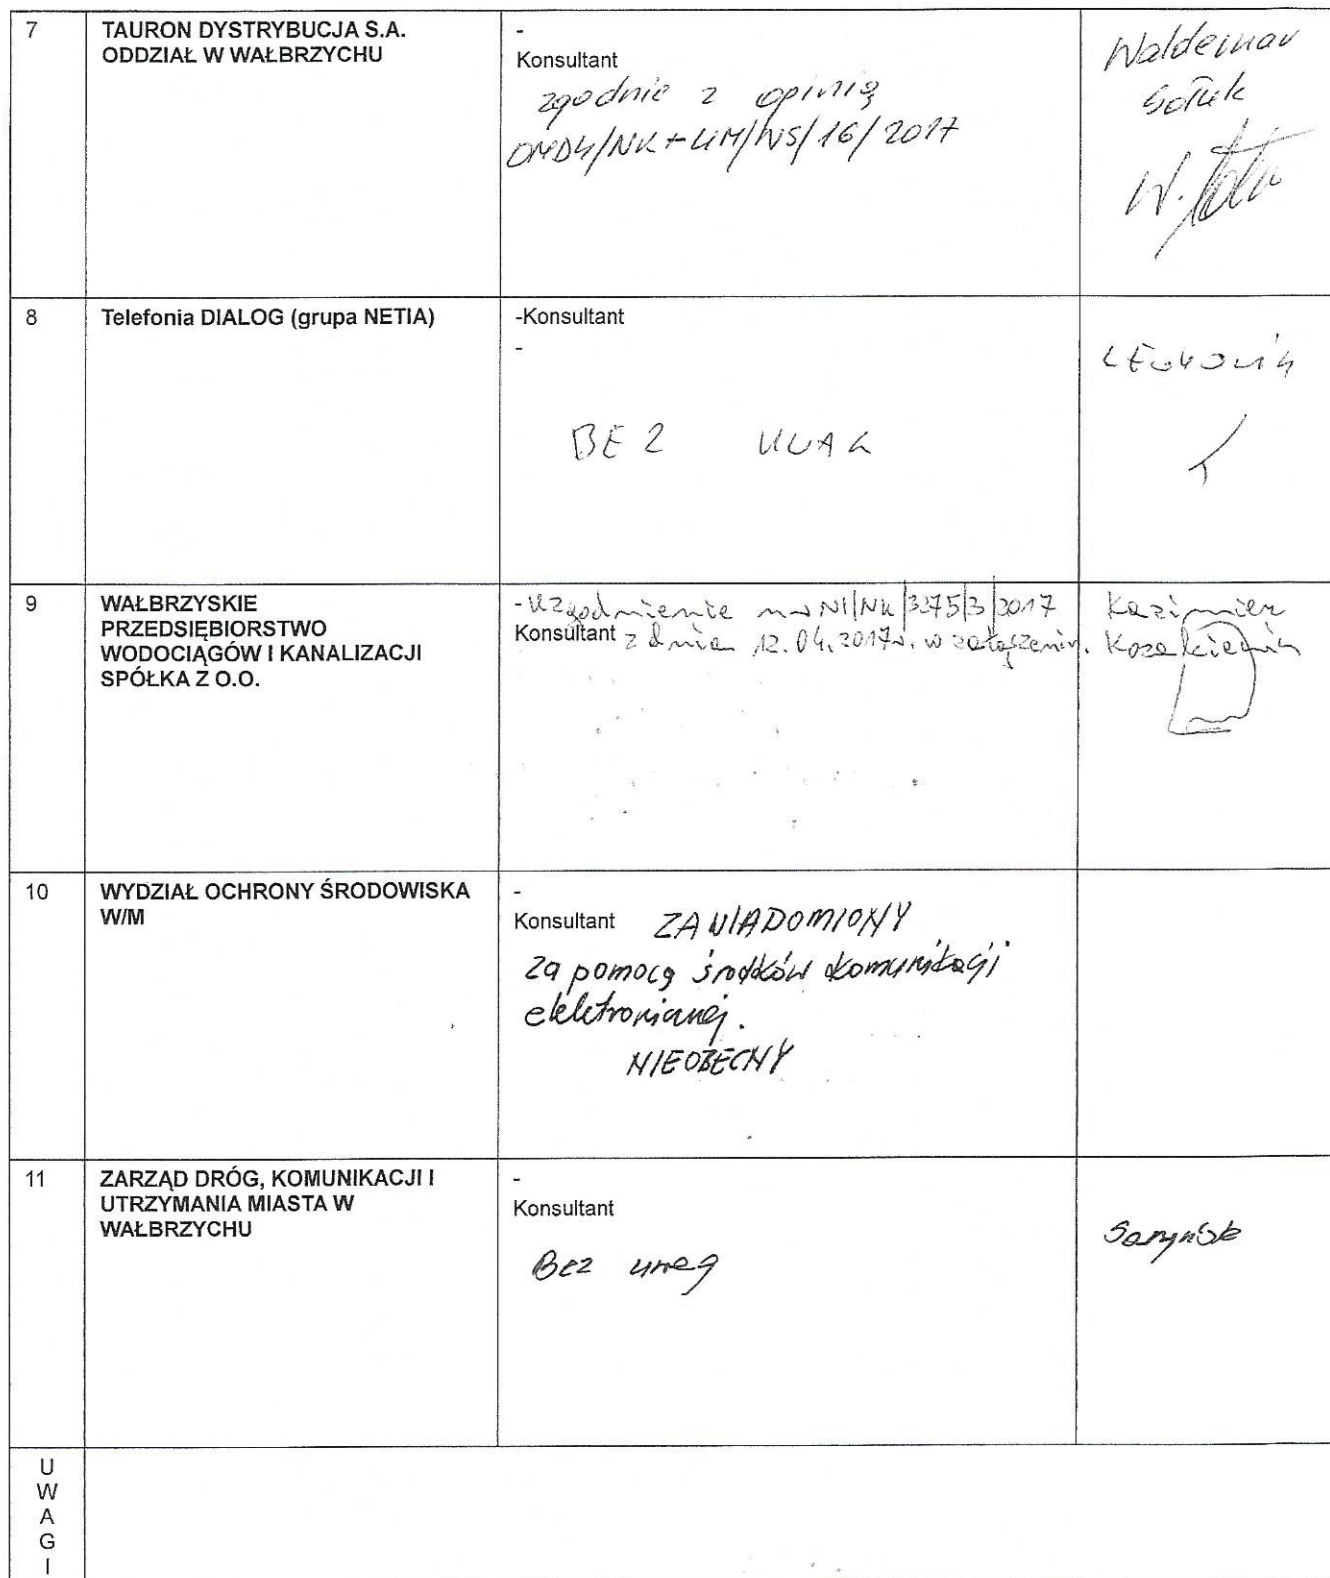 7
TAURON DYSTRYBUCJA S.A.
ODDZIAŁ W WAŁBRZYCHU
-
Konsultant
zgodnie z opinią
OMD4/NK+UM/WS/16/2017
Waldemar
W.
8
Telefonia DIALOG (grupa NETIA)
-Konsultant
-
BEZ UWAG
9
WAŁBRZYSKIE
PRZEDSIĘBIORSTWO
WODOCIĄGÓW I KANALIZACJI
SPÓŁKA Z O.O.
-Uzgodnienie nr NI/NK/3275/3/2017
Konsultant z dnia 12.04.2017r. w załączeniu.
Kazimierz
10
WYDZIAŁ OCHRONY ŚRODOWISKA
W/M
-
Konsultant ZAWIADOMIONY
za pomocą środków komunikacji
elektronicznej.
NIEOBECNY
11
ZARZĄD DRÓG, KOMUNIKACJI I
UTRZYMANIA MIASTA W
WAŁBRZYCHU
-
Konsultant
Bez uwag
U
W
A
G
I